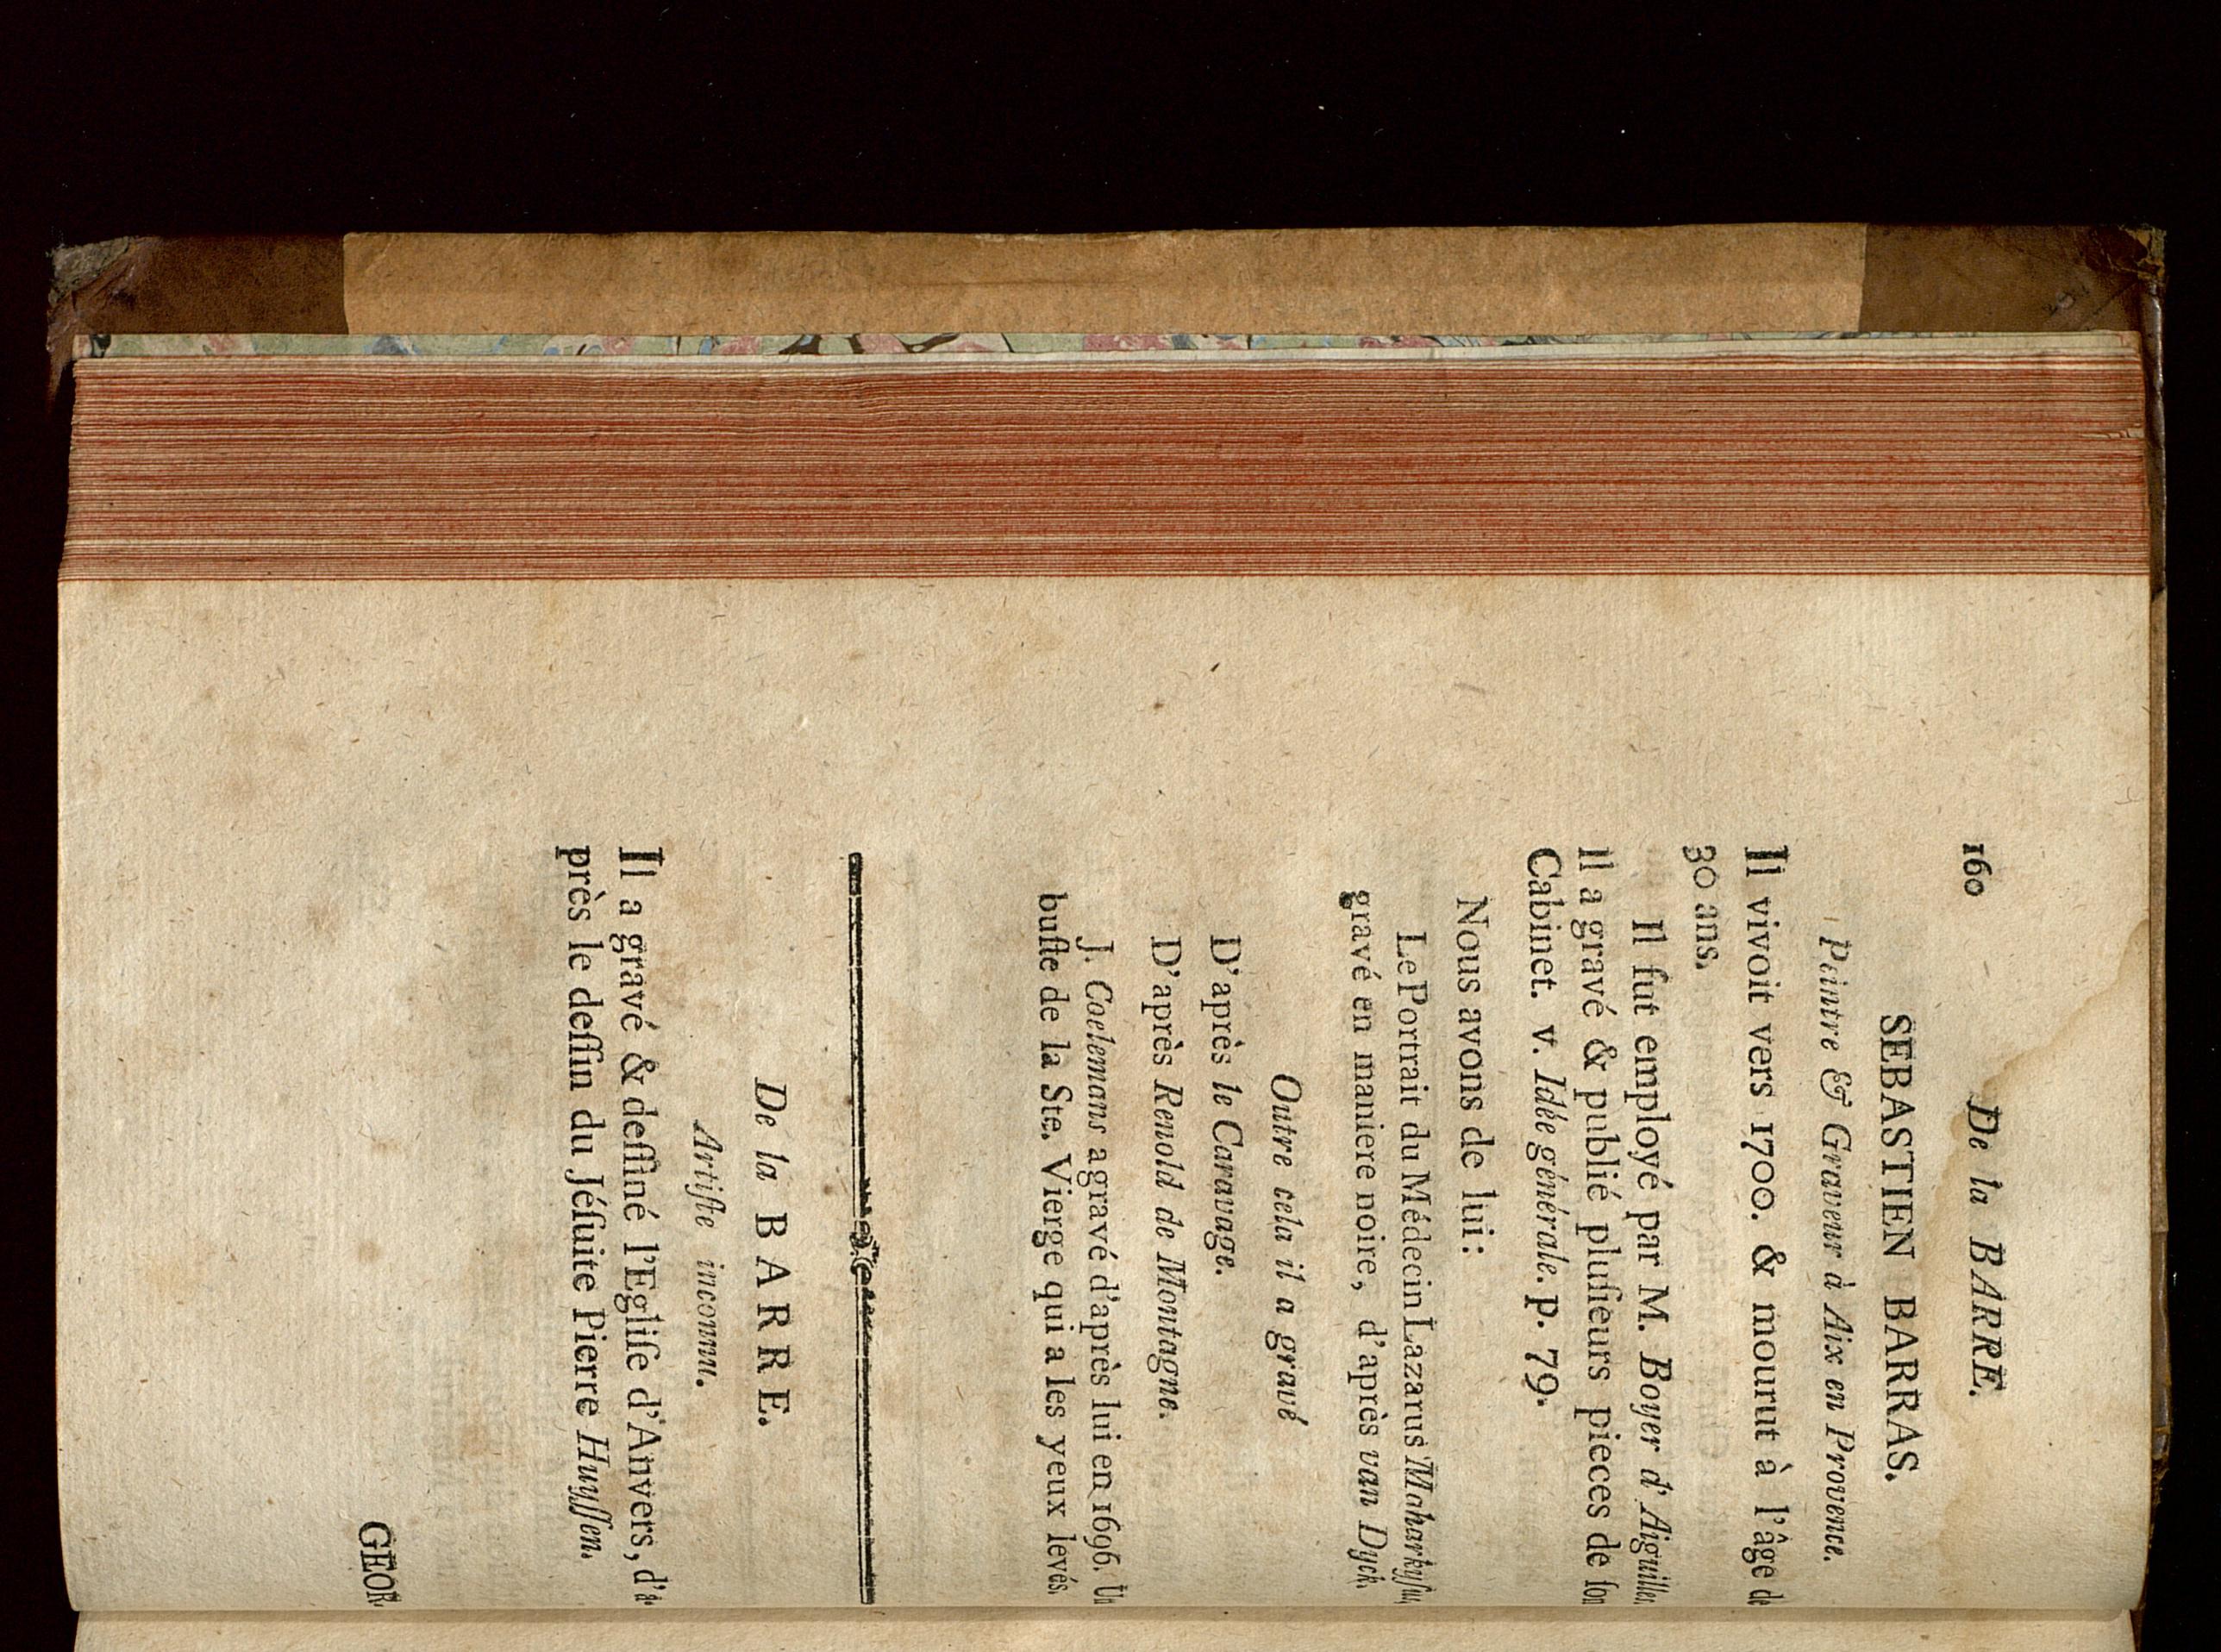 160 De la BARRE.
SEBASTIEN BARRAS.
Peintre & Graveur à Aix en Provence.
Il vivoit vers 1700. & mourut à l'âge de
30 ans.
Il fut employé par M. Boyer d'Aiguilles,
il a gravé & publié pluſieurs pieces de ſon
Cabinet. v. Idée générale. p. 79.
Nous avons de lui:
Le Portrait du Médecin Lazarus
gravé en maniere noire, d'après van Dyck.
Outre cela il a gravé
D'après le Caravage.
D'après Renold de Montagne.
J. Coelemans a gravé d'après lui en 1696. Un
buſte de la Ste. Vierge qui a les yeux levés.
De la BARRE.
Artiſte inconnu.
Il a gravé & deſſiné l'Egliſe d'Anvers, d'a-
près le deſſin du Jéſuite Pierre Huyſſen.
GEOR-